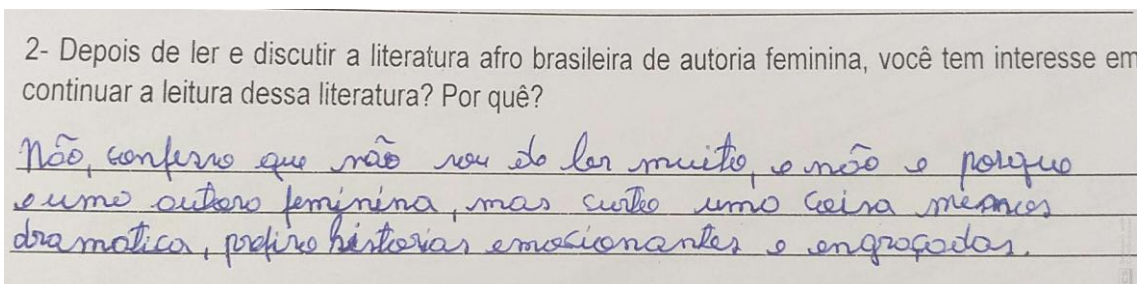 2- Depois de ler e discutir a literatura afro brasileira de autoria feminina, você tem interesse em
continuar a leitura dessa literatura? Por quê?
Não, confesso que não sou de ler muito, e não e porque
e uma autora feminina, mas curto uma coisa menos
dramatica, prefiro historias emocionantes e engraçadas.